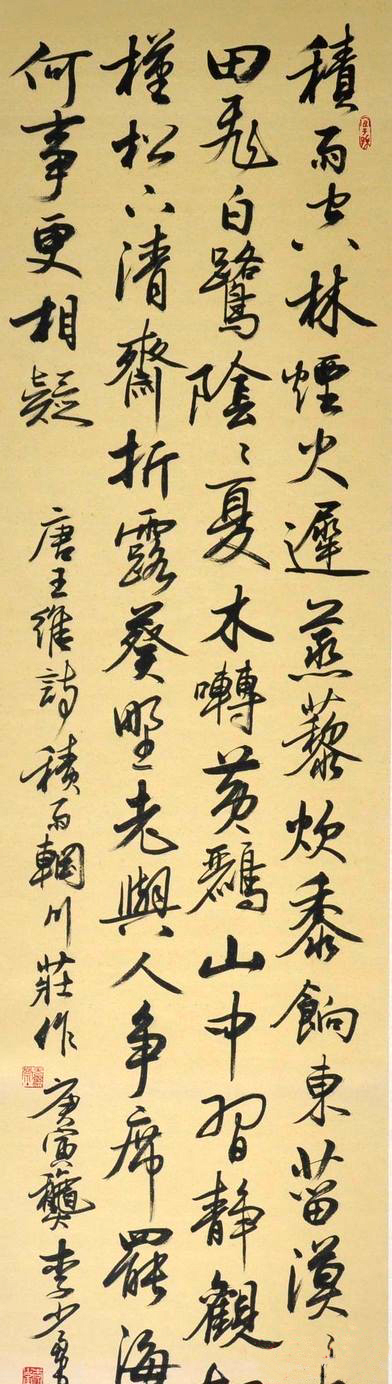 積雨空林煙火遲蒸藜炊黍餉東菑漠〻
田飛白鷺陰〻夏木囀黃鸝山中習靜觀
槿松下清齋折露葵野老與人争席罷海
何事更相疑 唐王維詩積雨輞川莊作 庚寅龔李少